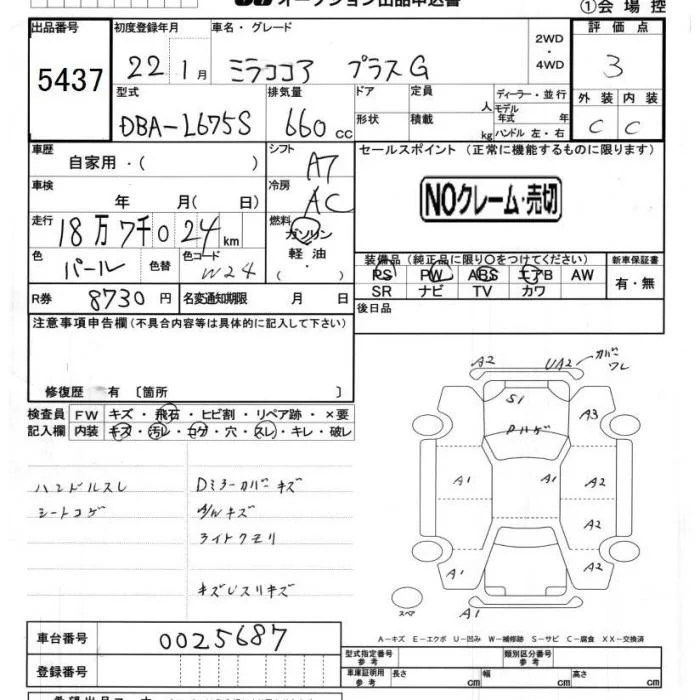 オークション出品申込書
①会場控
出品番号 初度登録年月 車名・グレード 評価点
5437 22年 1月 ミラココア プラスG 2WD・4WD 3
型式 排気量 ドア 定員 人 ディーラー・並行 外装 内装
DBA-L675S 660cc 形状 積載 kg モデル年式 年 ハンドル 左・右 C C
車歴 シフト セールスポイント (正常に機能するものに限ります)
自家用・( ) A7
車検 年 月( 日) 冷房 AC NOクレーム・売切
走行 18万7千024km 燃料 ガソリン
色 パール 色替 色コード W24 軽油・( )
装備品 (純正品に限り○をつけてください) 新車保証書
PS PW ABS エアB AW 有・無
SR ナビ TV カワ
R券 8730円 名変通知期限 月 日 後日品
注意事項申告欄(不具合内容等は具体的に記入して下さい)
修復歴 有 〔箇所 〕
検査員 FW キズ・飛石・ヒビ割・リペア跡・×要
記入欄 内装 キズ・汚レ・コゲ・穴・スレ・キレ・破レ
ハンドルスレ Dミラーカバーキズ
シートコゲ キズ
ライトクモリ
キズUスリキズ
A2 UA2 カバーワレ
S1 A3
Pハゲ
A1 A1 A2
A2
A1 A2
スペア A1
A-キズ E-エクボ U-凹み W-補修跡 S-サビ C-腐食 XX-交換済
車台番号 0025687
型式指定番号 参考 類別区分番号 参考
登録番号 車庫証明用 参考 長さ cm 幅 cm 高さ cm